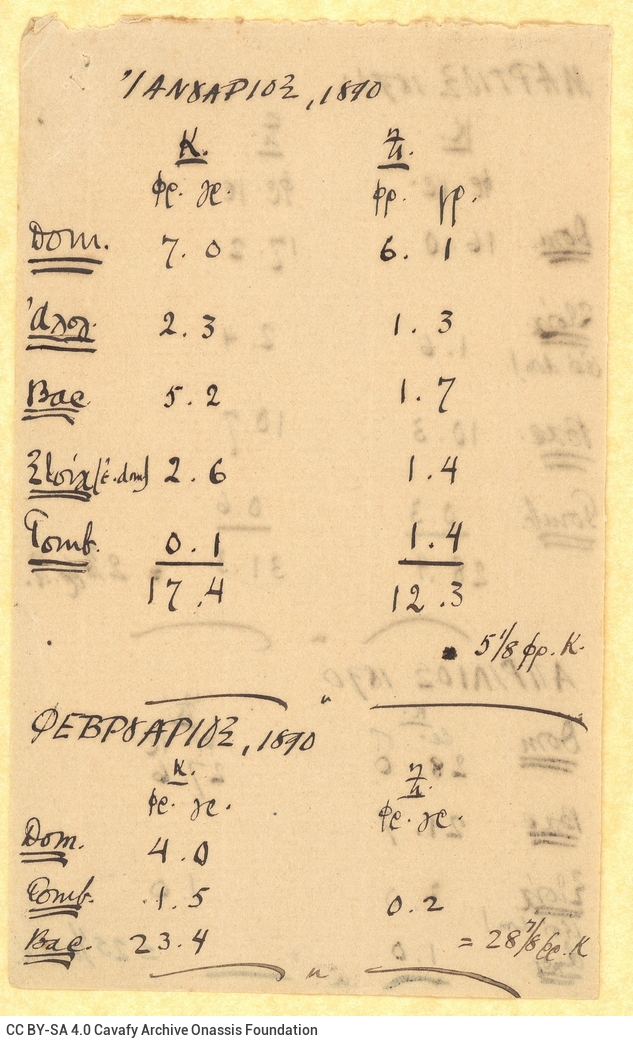 ἸΑΝΟΥΑΡΙΟΣ, 1890
Κ. Ζ.
φρ. γρ. φρ. γρ.
Dom. 7.0 6.1
Ἀπολ. 2.3 1.3
Βας. 5.2 1.7
Στοίχ. 2.6 1.4
Tomb. 0.1 1.4
17.4 12.3
5 1/8 φρ. Κ.
ΦΕΒΡΟΥΑΡΙΟΣ, 1890
Κ. Ζ.
φρ. γρ. φρ. γρ.
Dom. 4.0
Tomb. 1.5 0.2
Βας. 23.4 = 28 7/8 φρ. Κ
CC BY-SA 4.0 Cavafy Archive Onassis Foundation